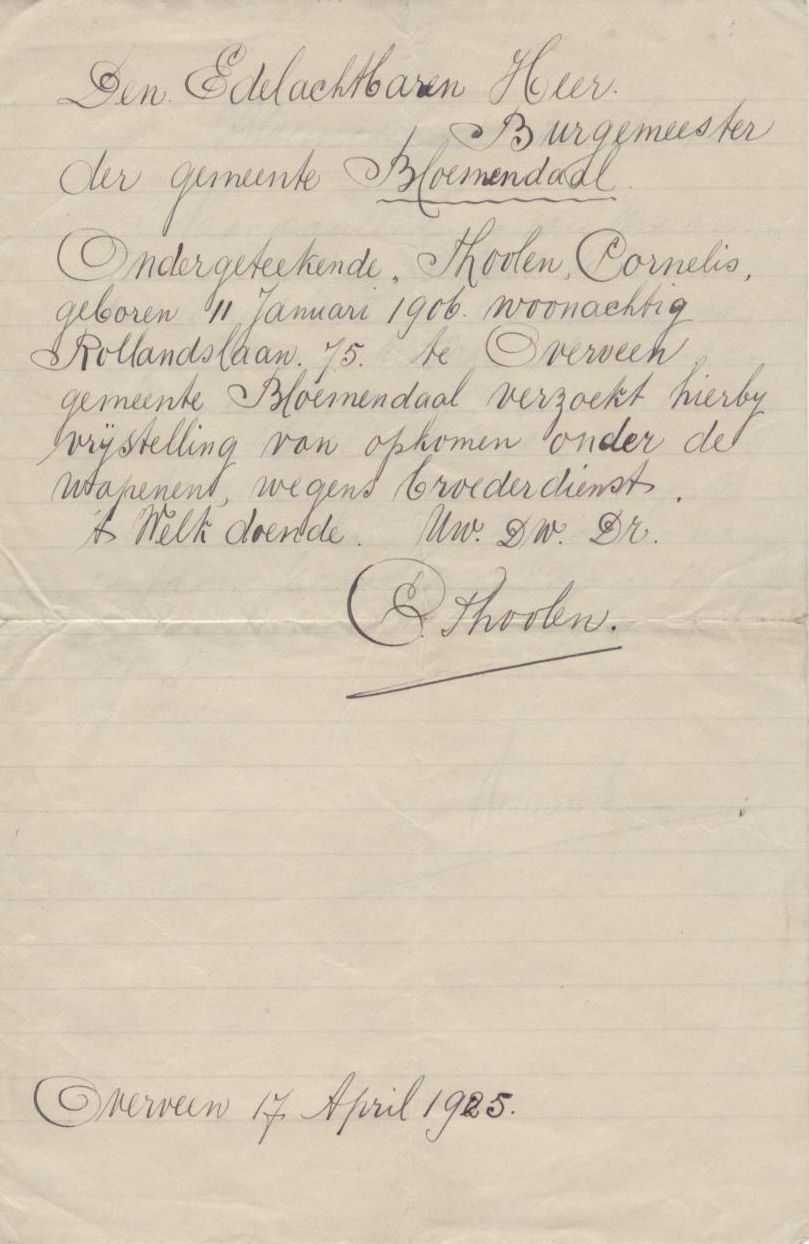 Den Edelachtbaren Heer.
Burgemeester
der gemeente Bloemendaal
Ondergeteekende, Thoolen, Cornelis,
geboren 11 Januari 1906. woonachtig
Rollandslaan. 75. te Overveen
gemeente Bloemendaal verzoekt hierby
vrijstelling van opkomen onder de
wapenen, wegens broederdienst.
't Welk doende. Uw. Dw. Dr.
C. Thoolen.
Overveen 17 April 1925.